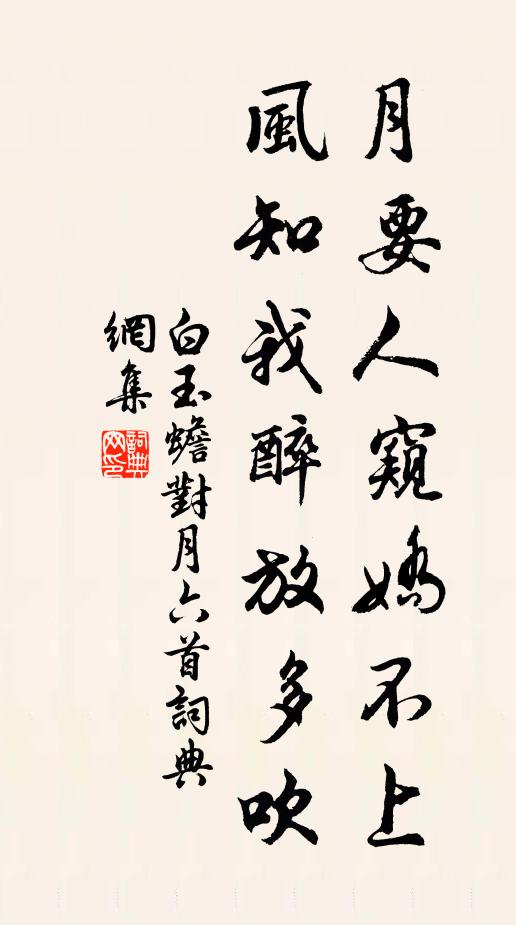 月要人窺嬌不上
風知我醉放多吹
白玉蟾對月六首詞典
網集
詞典
网印